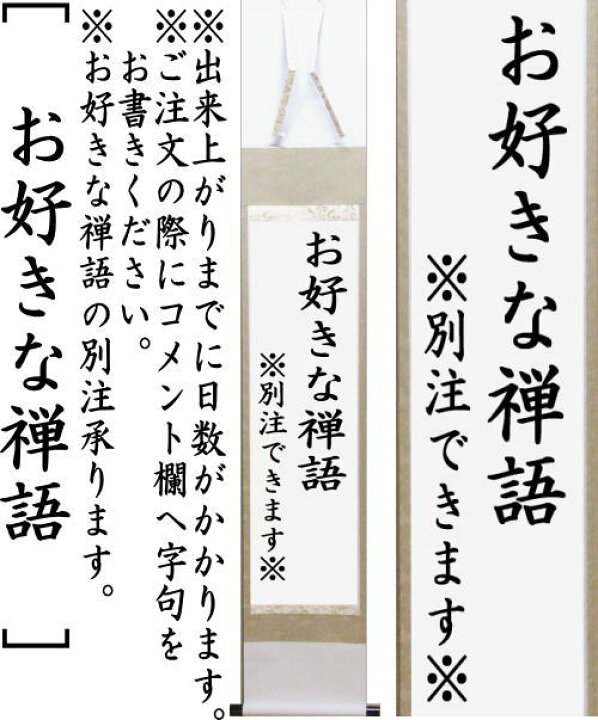 お好きな禅語
※別注できます※
お好きな禅語
※別注できます※
※出来上がりまでに日数がかかります。
※ご注文の際にコメント欄へ字句を
お書きください。
※お好きな禅語の別注承ります。
［お好きな禅語］